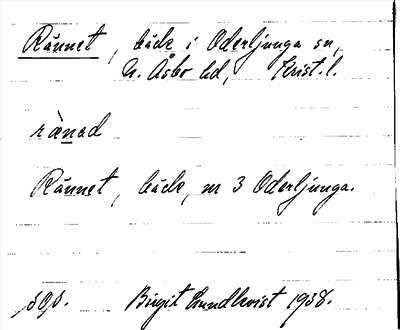 Rännet, bäck i Oderljunga sn,
N. Åsbo hd, Krist. l.
ränad
Rännet, bäck, nr 3 Oderljunga.
Birgit Lundkvist 1938.